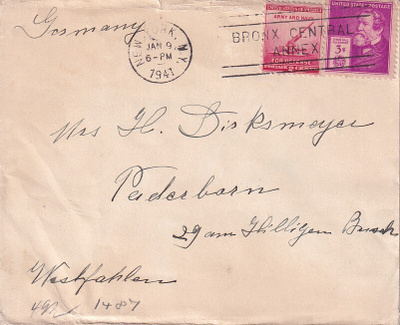 Germany
NEW YORK, N.Y.
JAN 9
6-PM
1941
BRONX CENTRAL
ANNEX
ARMY AND NAVY
FOR DEFENSE
UNITED STATES POSTAGE
3¢
Mrs H. Dirksmeyer
Paderborn
29 am Hilligen Busch
Westfahlen
1487